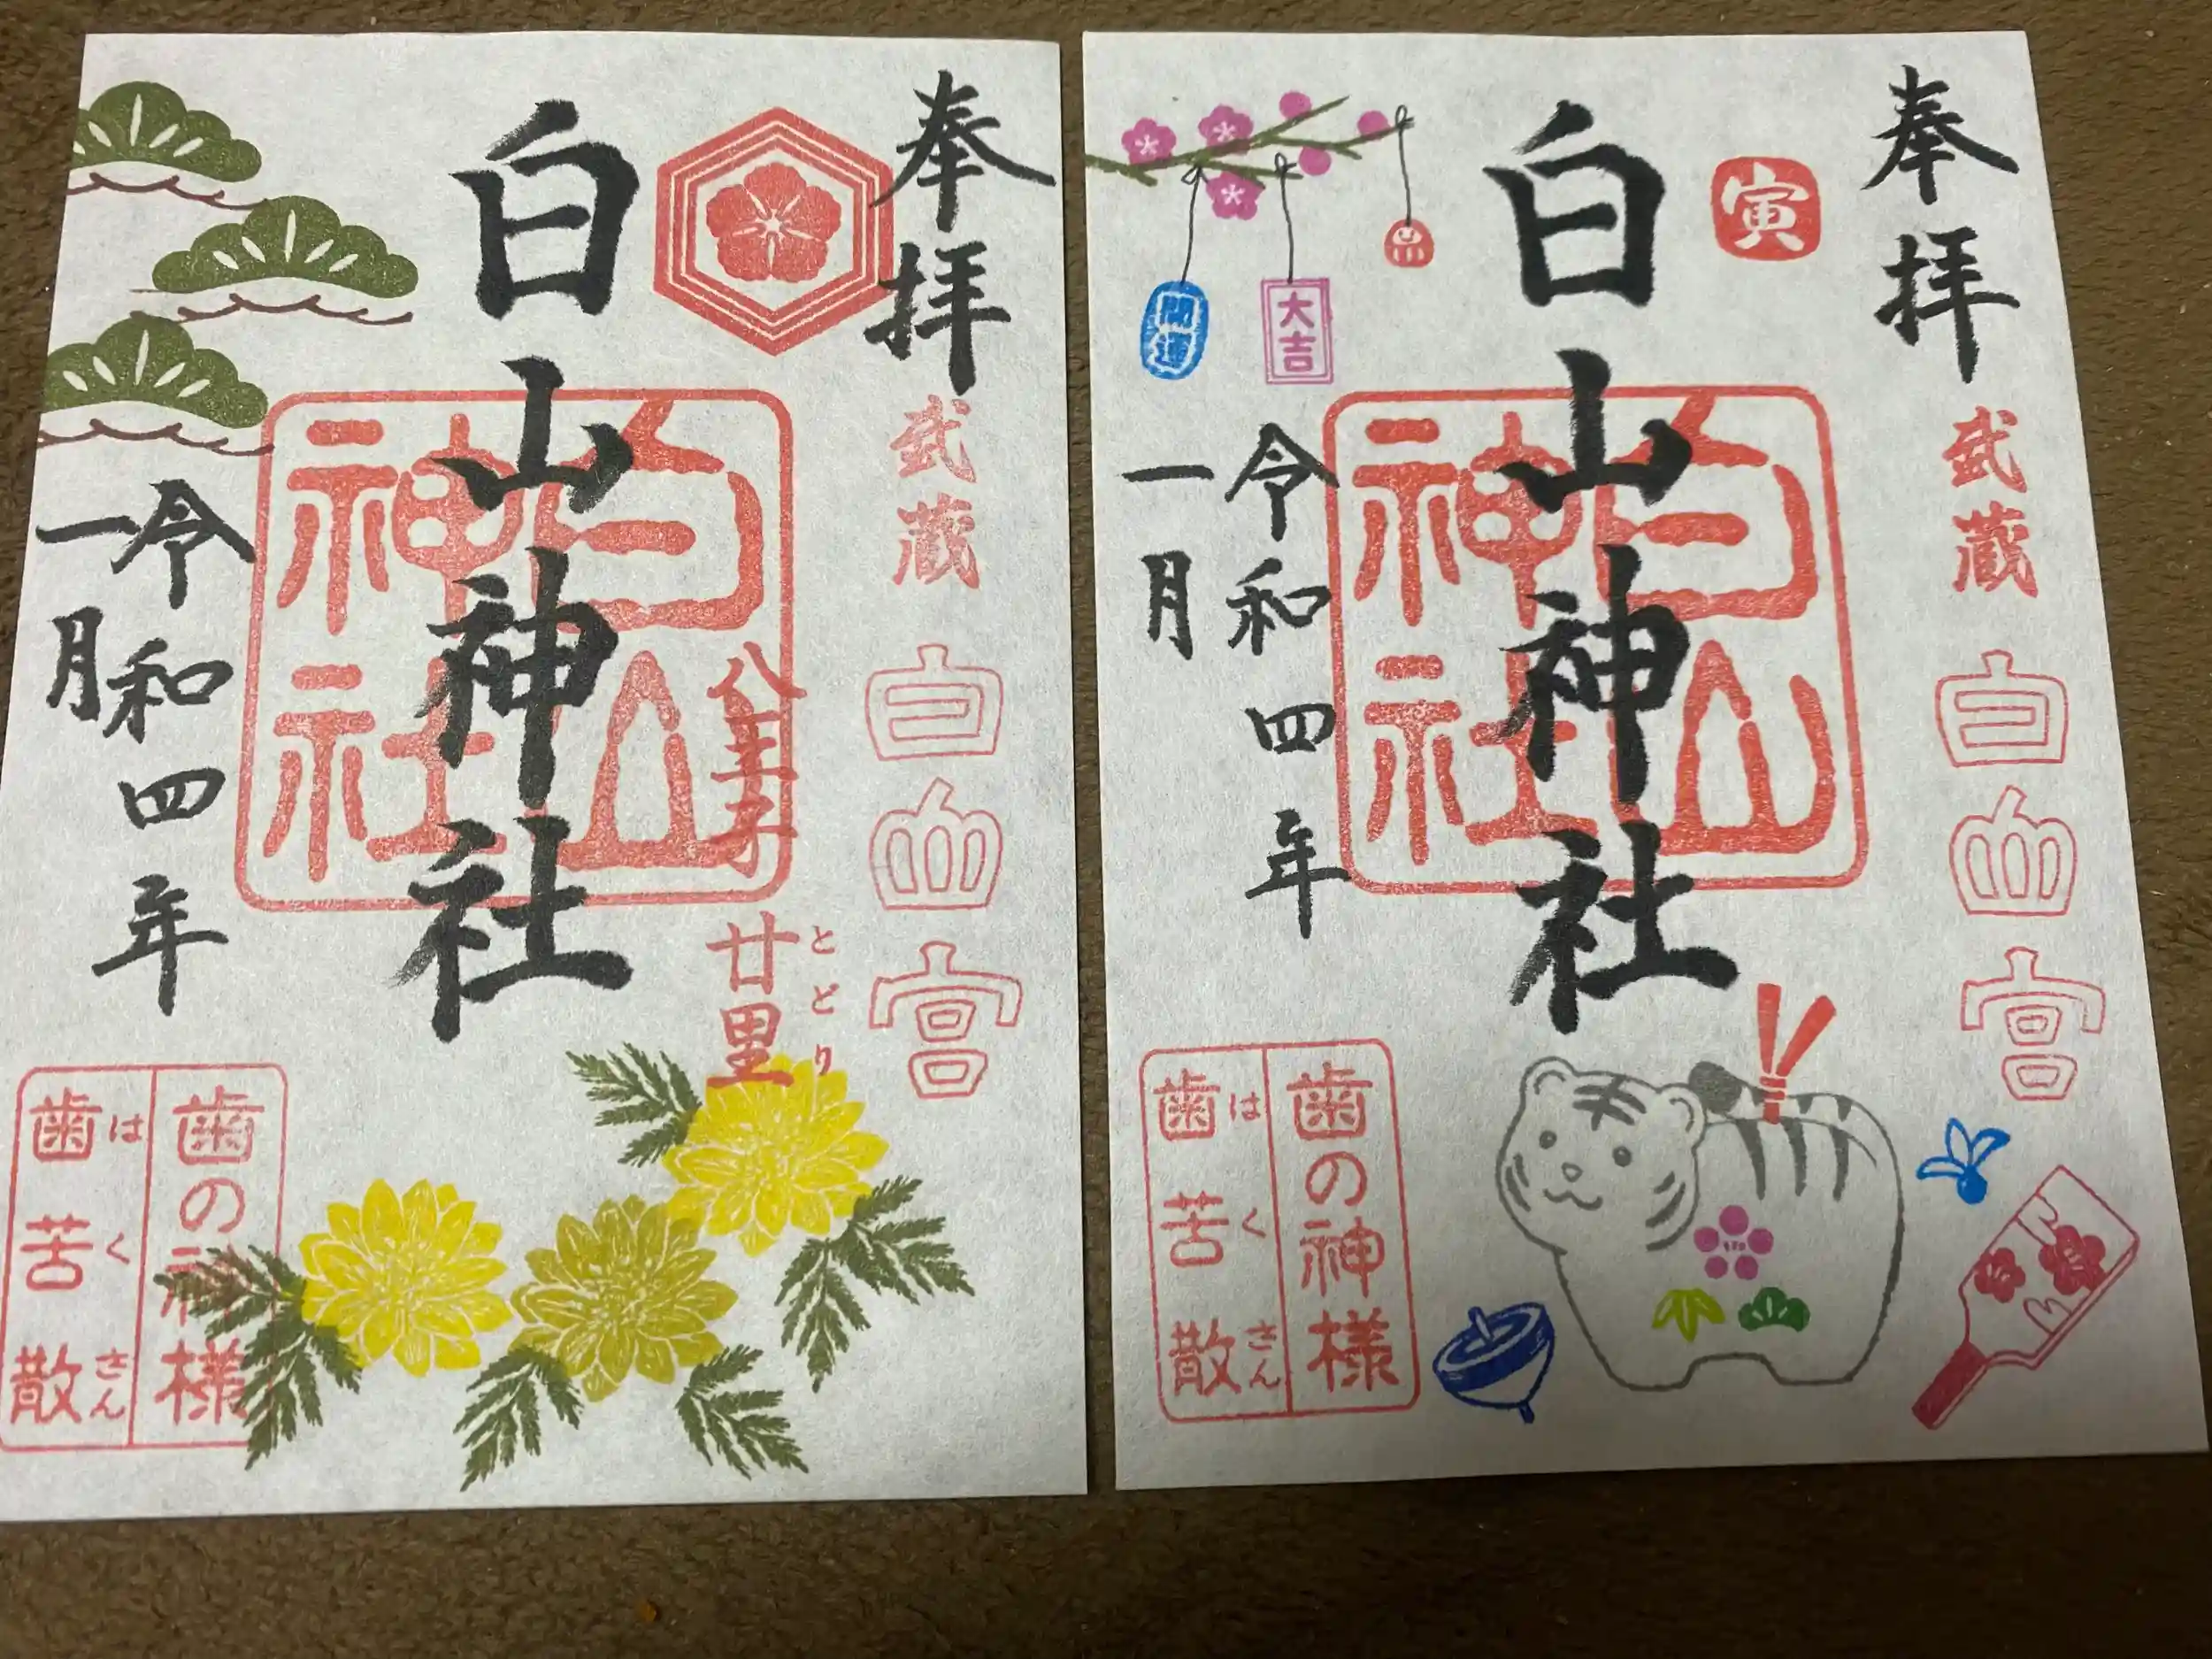 奉拝
武蔵
白山宮
白山神社
白山神社
八王子
廿里
とどり
令和四年
一月
歯の神様
歯苦散
はくさん
奉拝
武蔵
白山宮
寅
白山神社
白山神社
大吉
開運
令和四年
一月
歯の神様
歯苦散
はくさん